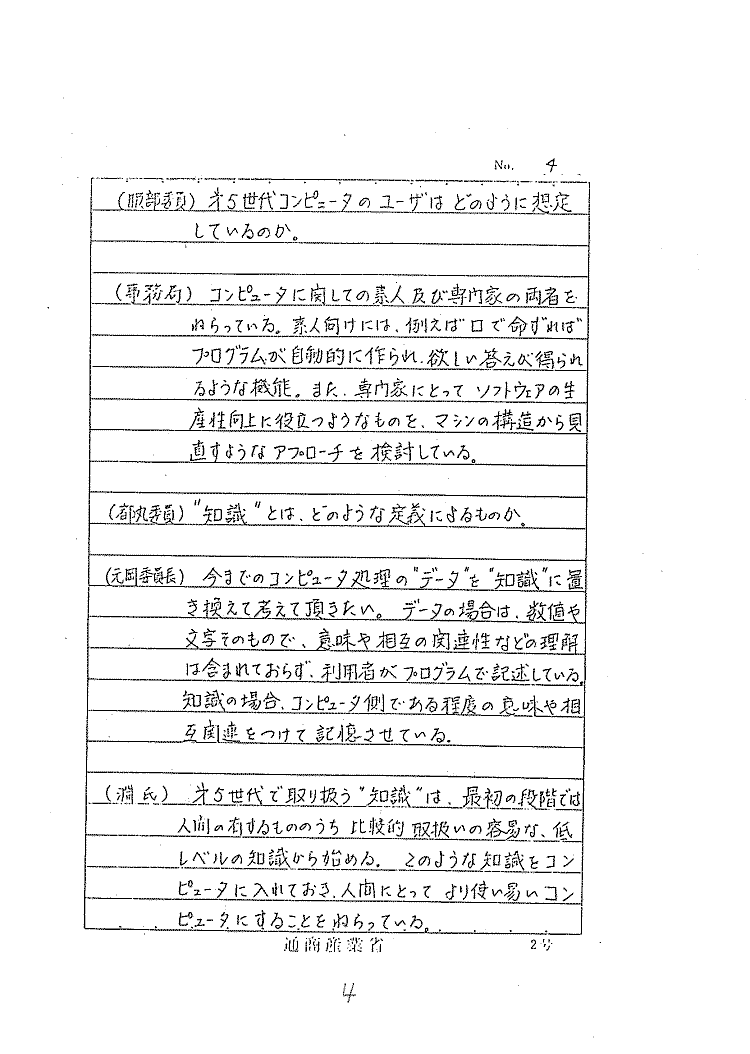 No. 4
(服部委員) 第5世代コンピュータのユーザはどのように想定
しているのか。
(事務局) コンピュータに関しての素人及び専門家の両者を
ねらっている。素人向けには、例えば口で命ずれば
プログラムが自動的に作られ、欲しい答えが得られ
るような機能。また、専門家にとってソフトウェアの生
産性向上に役立つようなものを、マシンの構造から見
直すようなアプローチを検討している。
(都丸委員) "知識"とは、どのような定義によるものか。
(元岡委員長) 今までのコンピュータ処理の"データ"を"知識"に置
き換えて考えて頂きたい。データの場合は、数値や
文字そのもので、意味や相互の関連性などの理解
は含まれておらず、利用者がプログラムで記述している。
知識の場合、コンピュータ側である程度の意味や相
互関連をつけて記憶させている。
(淵氏) 第5世代で取り扱う"知識"は、最初の段階では
人間の有するもののうち比較的取扱いの容易な、低
レベルの知識から始める。このような知識をコン
ピュータに入れておき、人間にとってより使い易いコン
ピュータにすることをねらっている。
通商産業省 2号
4